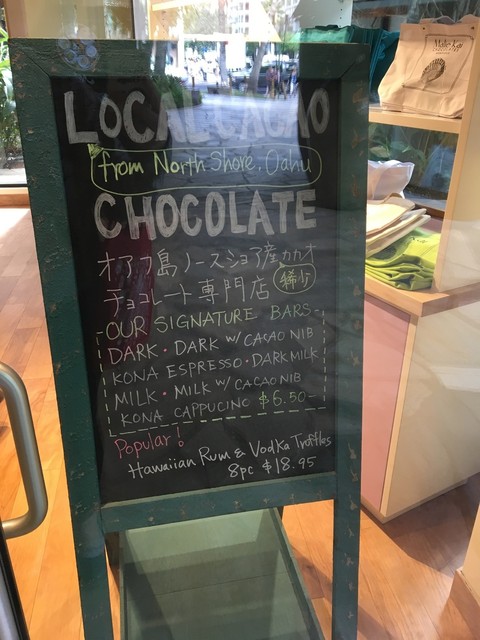 LOCAL CACAO
from North Shore, Oahu
CHOCOLATE
オアフ島ノースショア産カカオ
チョコレート専門店 稀少
OUR SIGNATURE BARS
DARK・DARK w/ CACAO NIB
KONA ESPRESSO・DARK MILK
MILK・MILK w/ CACAO NIB
KONA CAPPUCINO $6.50-
Popular!
Hawaiian Rum & Vodka Truffles
8pc $18.95
Malie Kai